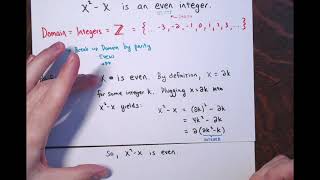 x² - x is an even integer.
Domain = Integers = ℤ = { ... -3, -2, -1, 0, 1, 2, 3, ... }
Break up Domain by parity
x is even. By definition, x = 2k
for some integer k. Plugging x = 2k into
x² - x yields: x² - x = (2k)² - 2k
= 4k² - 2k
= 2(2k² - k)
INTEGER
So, x² - x is even